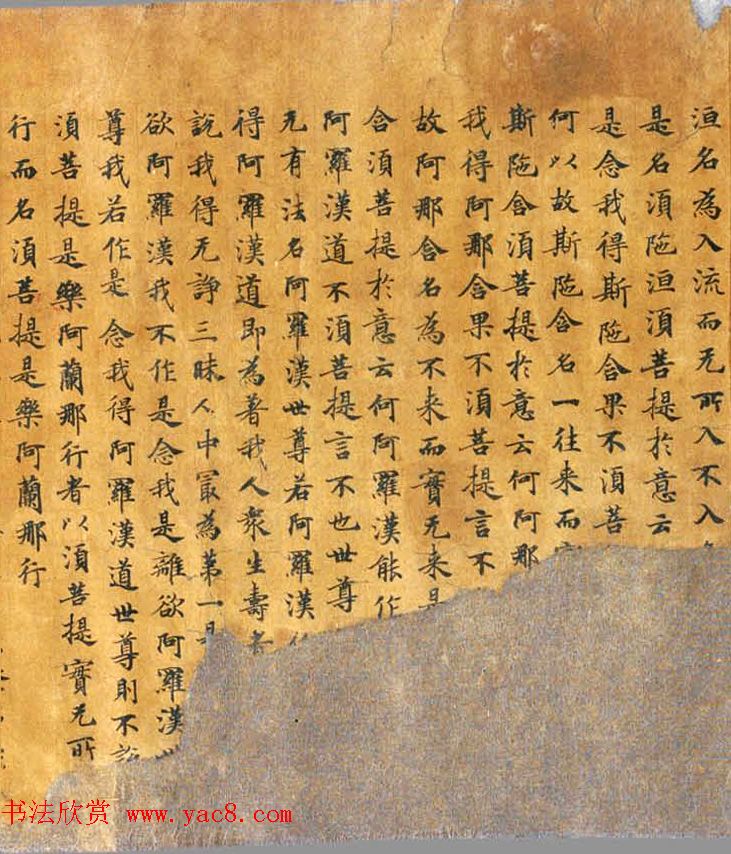 洹名為入流而无所入不入
是名湏陁洹湏菩提於意云
是念我得斯陁含果不湏菩
何以故斯陁含名一往来而
斯陁含湏菩提於意云何阿那
我得阿那含果不湏菩提言不
故阿那含名為不来而實无来是
含湏菩提於意云何阿羅漢能作
阿羅漢道不湏菩提言不也世尊
无有法名阿羅漢世尊若阿羅漢
得阿羅漢道即為著我人衆生壽者
說我得无諍三昧人中冣為第一是
欲阿羅漢我不作是念我是離欲阿羅漢
尊我若作是念我得阿羅漢道世尊則不說
湏菩提是樂阿蘭那行者以湏菩提實无所
行而名湏菩提是樂阿蘭那行
书法欣赏 www.yac8.com